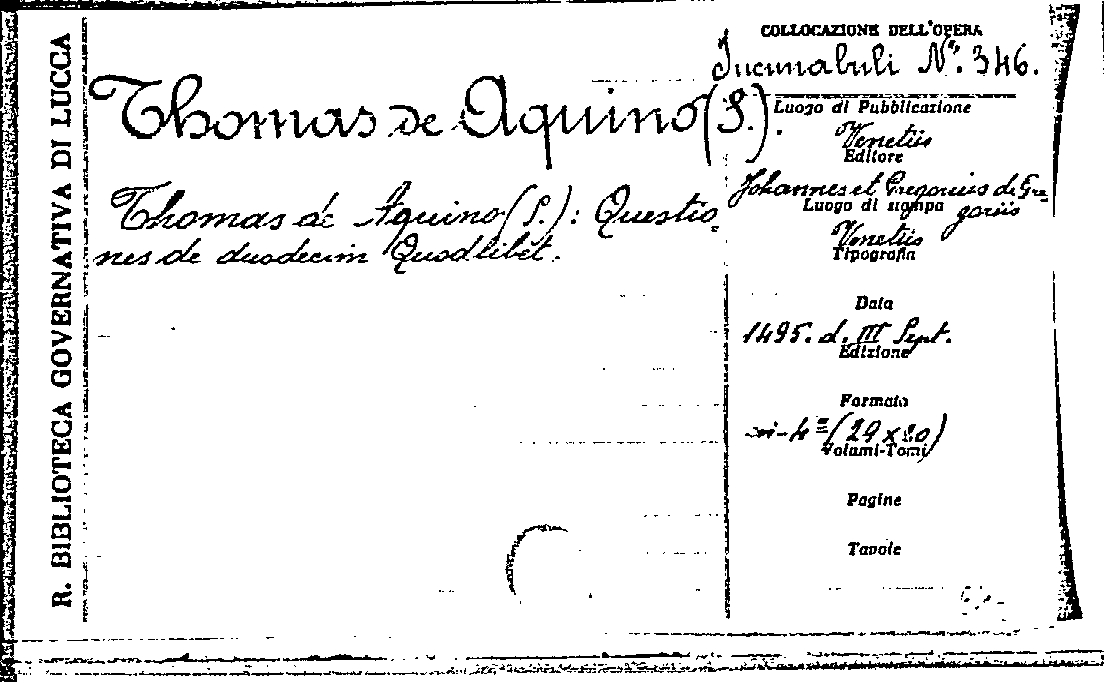 R. BIBLIOTECA GOVERNATIVA DI LUCCA
Thomas de Aquino (S.).
Thomas de Aquino (S.): Questio=
nes de duodecim Quodlibet.
COLLOCAZIONE DELL'OPERA
Incunabuli N.º 346.
Luogo di Pubblicazione
Venetiis
Editore
Johannes et Gregorius de Gre=
goriis
Luogo di stampa
Venetiis
Tipografia
Data
1495. d. III Sept.
Edizione
Formato
in-4º (29 x 20)
Volumi-Tomi
Pagine
Tavole